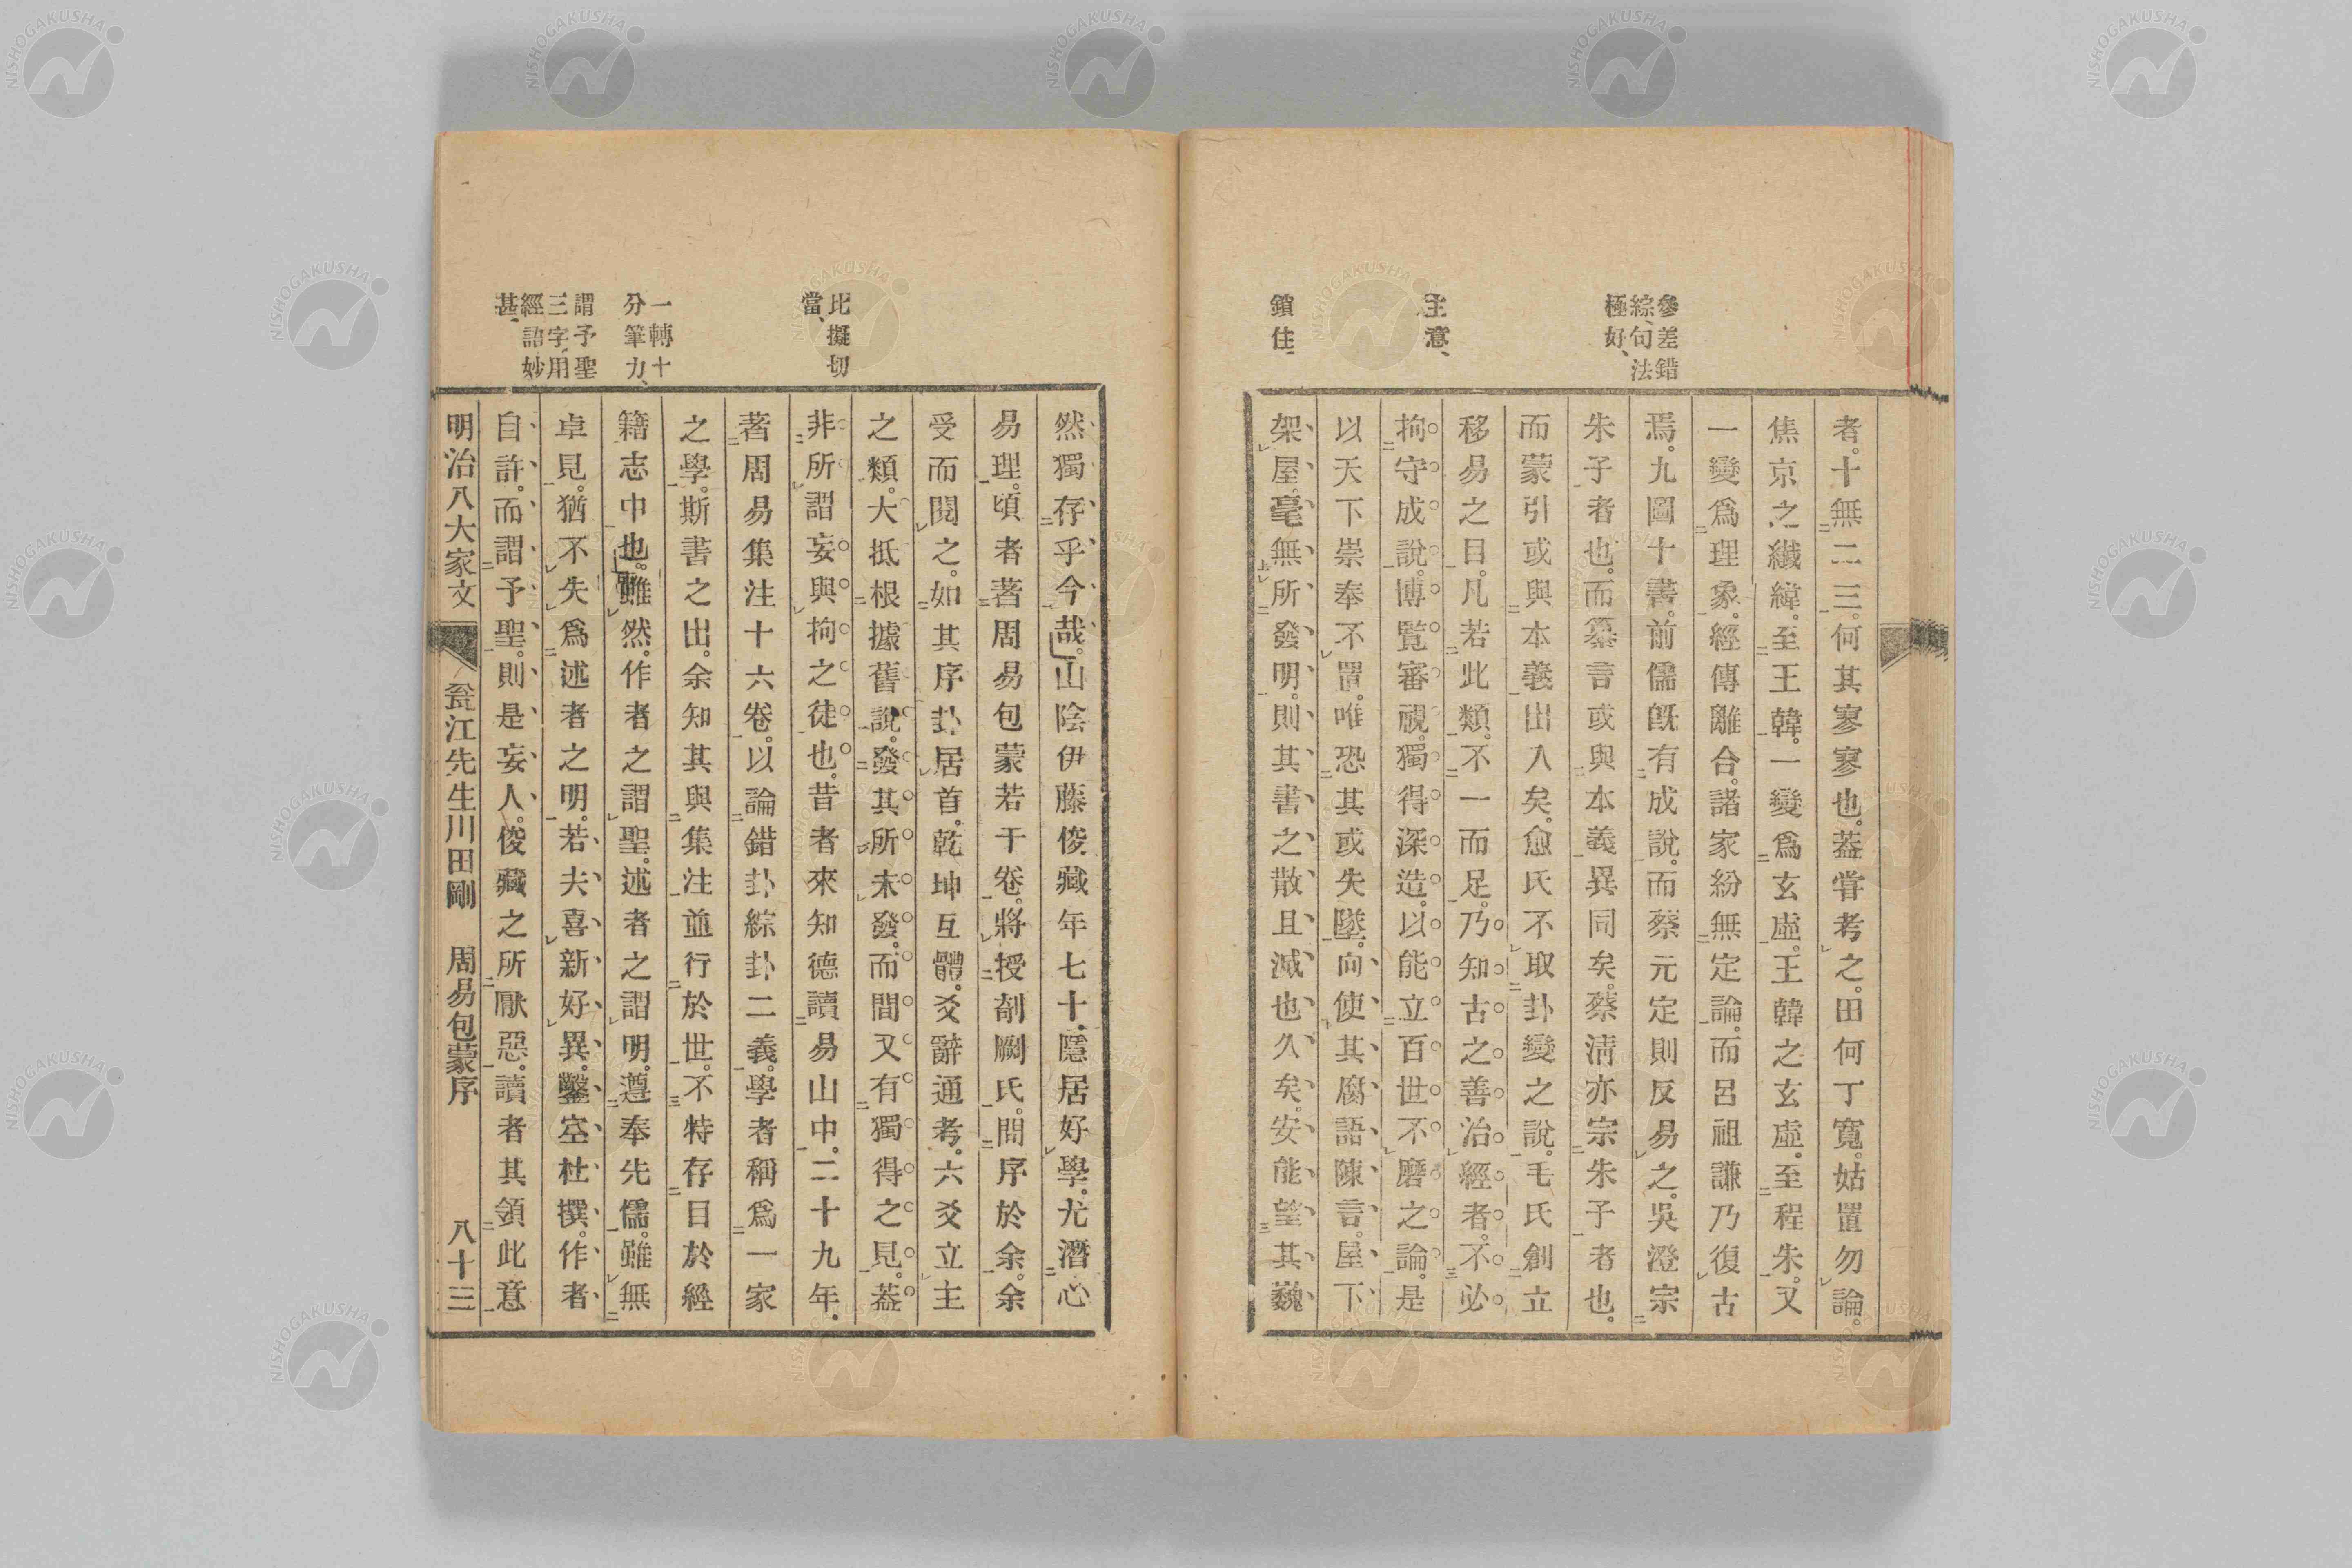 參差錯
綜、句法
極好、
主意、
鎖住、
者。十無二三。何其寥寥也。蓋甞考之。田何丁寬。姑置勿論。
焦京之纖緯。至王韓。一變爲玄虛。王韓之玄虛。至程朱。又
一變爲理象。經傳離合。諸家紛無定論。而呂祖謙乃復古
焉。九圖十書。前儒旣有成說。而蔡元定則反易之。吳澄宗
朱子者也。而纂言或與本義異同矣。蔡淸亦宗朱子者也。
而蒙引或與本義出入矣。愈氏不取卦變之說。毛氏創立
移易之目。凡若此類。不一而足。乃知古之善治經者。不必
拘守成說。博覽審視。獨得深造。以能立百世不磨之論。是
以天下崇奉不置。唯恐其或失墜。向使其腐語陳言。屋下
架屋。毫無所發明。則其書之散且滅也久矣。安能望其巍
比擬切
當、
一轉十
分筆力、
謂予聖
三字、用
經語妙
甚、
然獨存乎今哉。山陰伊藤俊藏年七十。隱居好學。尤潛心
易理。頃者著周易包蒙若干卷。將授剞劂氏。問序於余。余
受而閱之。如其序卦居首。乾坤互體。爻辭通考。六爻立主
之類。大抵根據舊說。發其所未發。而間又有獨得之見。蓋
非所謂妄與拘之徒也。昔者來知德讀易山中。二十九年。
著周易集注十六卷。以論錯卦綜卦二義。學者稱爲一家
之學。斯書之出。余知其與集注並行於世。不特存目於經
籍志中也。雖然。作者之謂聖。述者之謂明。遵奉先儒。雖無
卓見。猶不失爲述者之明。若夫喜新好異。鑿空杜撰。作者
自許。而謂予聖。則是妄人。俊藏之所厭惡。讀者其領此意
明治八大家文 甕江先生川田剛 周易包蒙序 八十三
NISHOGAKUSHA